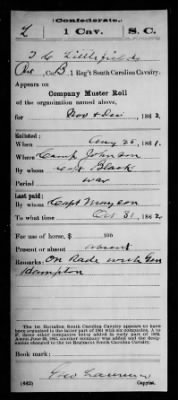 (Confederate.)
L 1 Cav. S. C.
T C Littlefield
Pvt, Co. B, 1 Reg't South Carolina Cavalry.
Appears on
Company Muster Roll
of the organization named above,
for Nov & Dec, 1862.
Enlisted:
When Aug 25, 1861.
Where Camp Johnson
By whom Black
Period war
Last paid:
By whom Capt
To what time Oct 31, 1862.
For use of horse, $ 100
Present or absent absent
Remarks: On Rade with Gen
Hampton
The 1st Battalion South Carolina Cavalry appears to have
Book mark:
(642) Copyist.